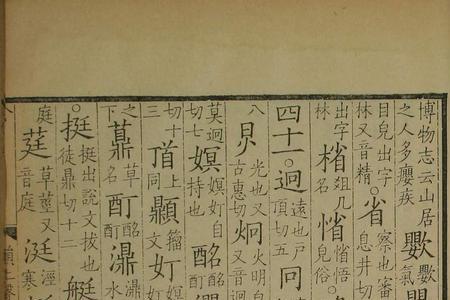 博物志云山居
之人多癭疾
氣
目皃出字
林又音精
省
察也審
息井切
出字
林
㮐
名
㥠
悟
皃俗
四十一○迥
遠也戶
頂切五
泂
八
炅
光也又
古惠切
炯
火明
又音迥
莫迥
切七
嫇
嫇奵自
持也
酩
切十
三
頂
上
同
籒
文
奵
之
下
薡
草
名
酊
酩
酊
濎
○挺
挺出說文拔也
徒鼎切十二
艇
庭
莛
草莖又
音庭
涏
涇
寒